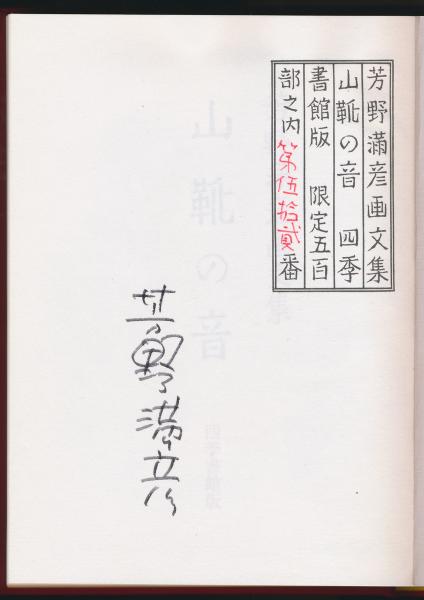 芳野滿彦画文集
山靴の音　四季
書館版　限定五百
部之内第伍拾貳番
芳野満彦
山靴の音
集
四季書館版